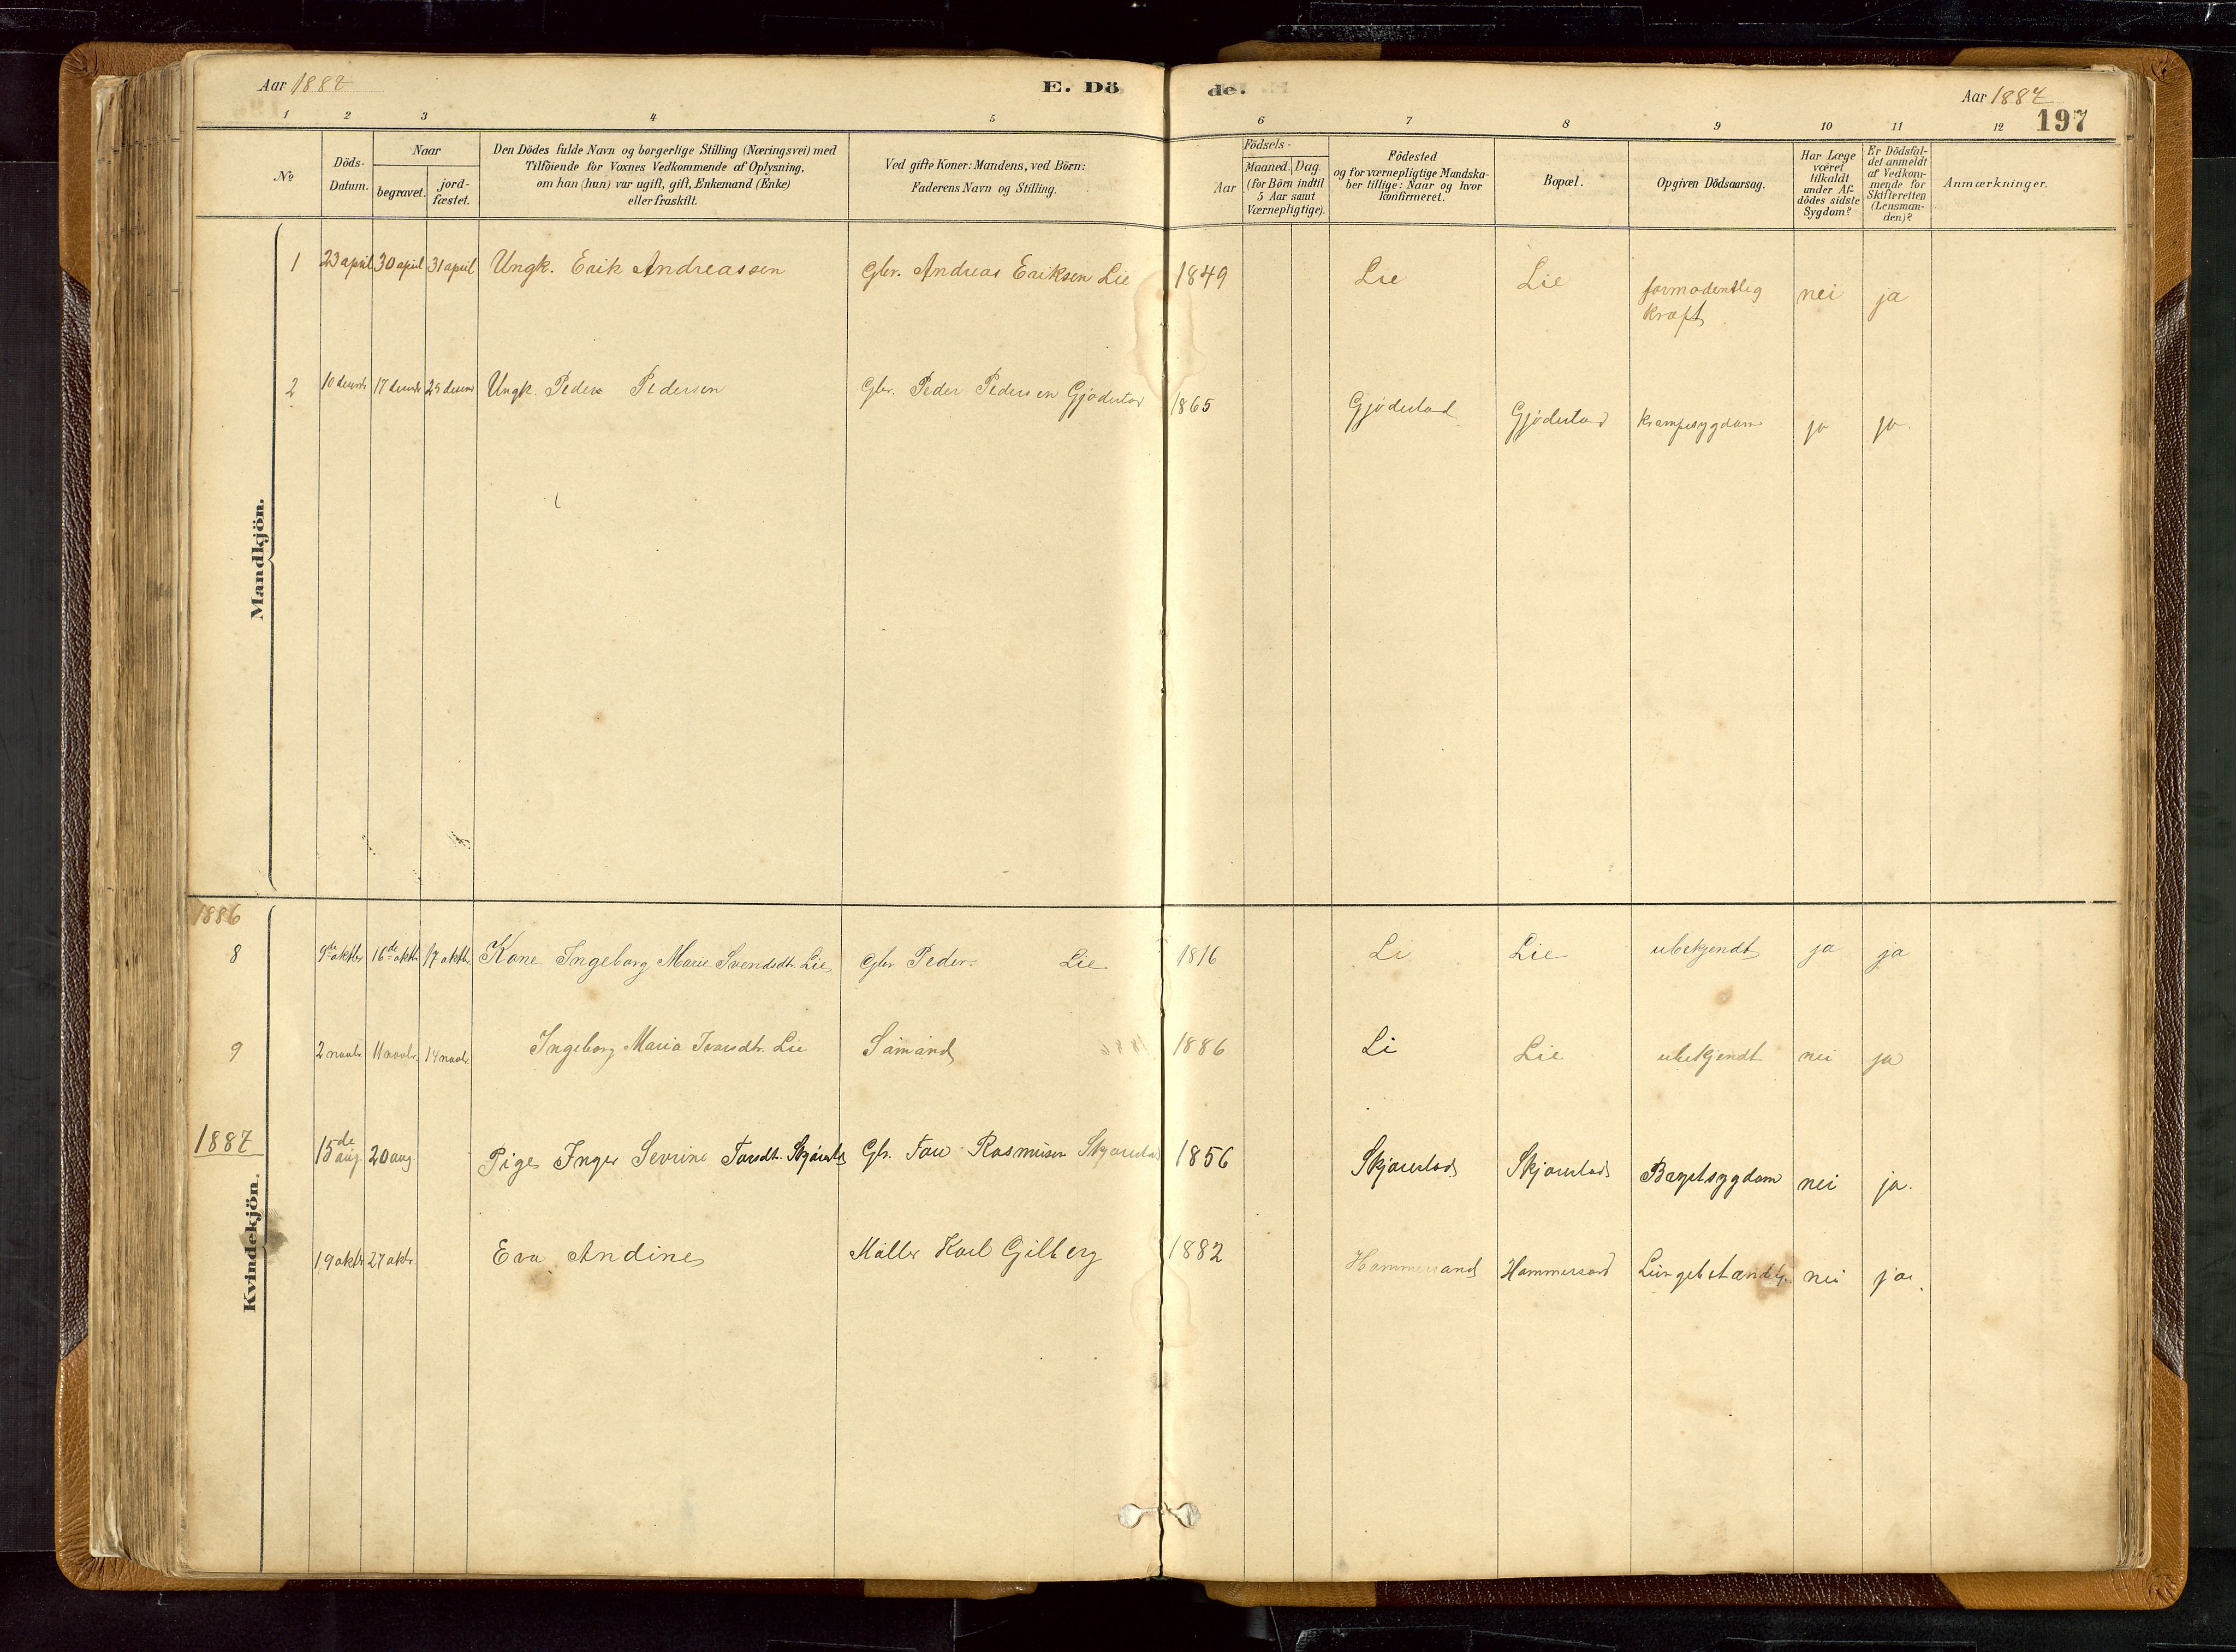 Aar 1887
E. Dö
de.
Aar 1887
197
1 2 3 4 5 6 7 8 9 10 11 12
No
Döds-Datum.
Naar
begravet.
jord-fæstet.
Den Dödes fulde Navn og borgerlige Stilling (Næringsvei) med
Tilföiende for Voxnes Vedkommende af Oplysning,
om han (hun) var ugift, gift, Enkemand (Enke)
eller fraskilt.
Ved gifte Koner: Mandens, ved Börn:
Faderens Navn og Stilling.
Födsels-
Aar
Maaned. Dag.
(for Börn indtil
5 Aar samt
Værnepligtige).
Födested
og for værnepligtige Mandska-
ber tillige: Naar og hvor
konfirmeret.
Bopæl.
Opgiven Dödsaarsag.
Har Læge
været
tilkaldt
under Af-
dödes sidste
Sygdom?
Er Dödsfal-
det anmeldt
af Vedkom-
mende for
Skifteretten
(Lensman-
den)?
Anmærkninger.
Mandkjön.
1 23 april 30 april 31 april Ungk. Erik Andreassen Gbr. Andreas Eriksen Lie 1849 Lie Lie formodentlig kræft nei ja
2 10 decmbr 17 decmbr Ungk. Peder Pedersen Gbr. Peder Pedersen Gjødestad 1865 Gjødestad Gjødestad Krampesygdom ja ja.
1886
8 9de oktbr 16de oktbr 17 oktbr Kone Ingeborg Marie Svendsdtr. Lie Gbr Peder Lie 1816 Li Lie ubekjendt ja ja
9 2 novbr. 11 novbr. 14 novbr. Ingeborg Maria Ivarsdtr. Lie Sømand 1886 Li Lie ubekjendt nei ja
1887
15de aug. 20 aug. Pige Inger Sevrine Gbr. Rasmusen 1856 Skjærestad Skjærestad Brystsygdom nei ja.
19 oktbr 27 oktbr. Eva Andine Møller Karl Gilberg 1882 Hammersand Hammersand nei ja.
Kvindekjön.